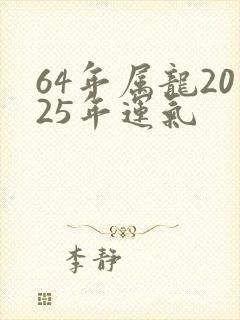 64年属龍20
25年運氣
李靜